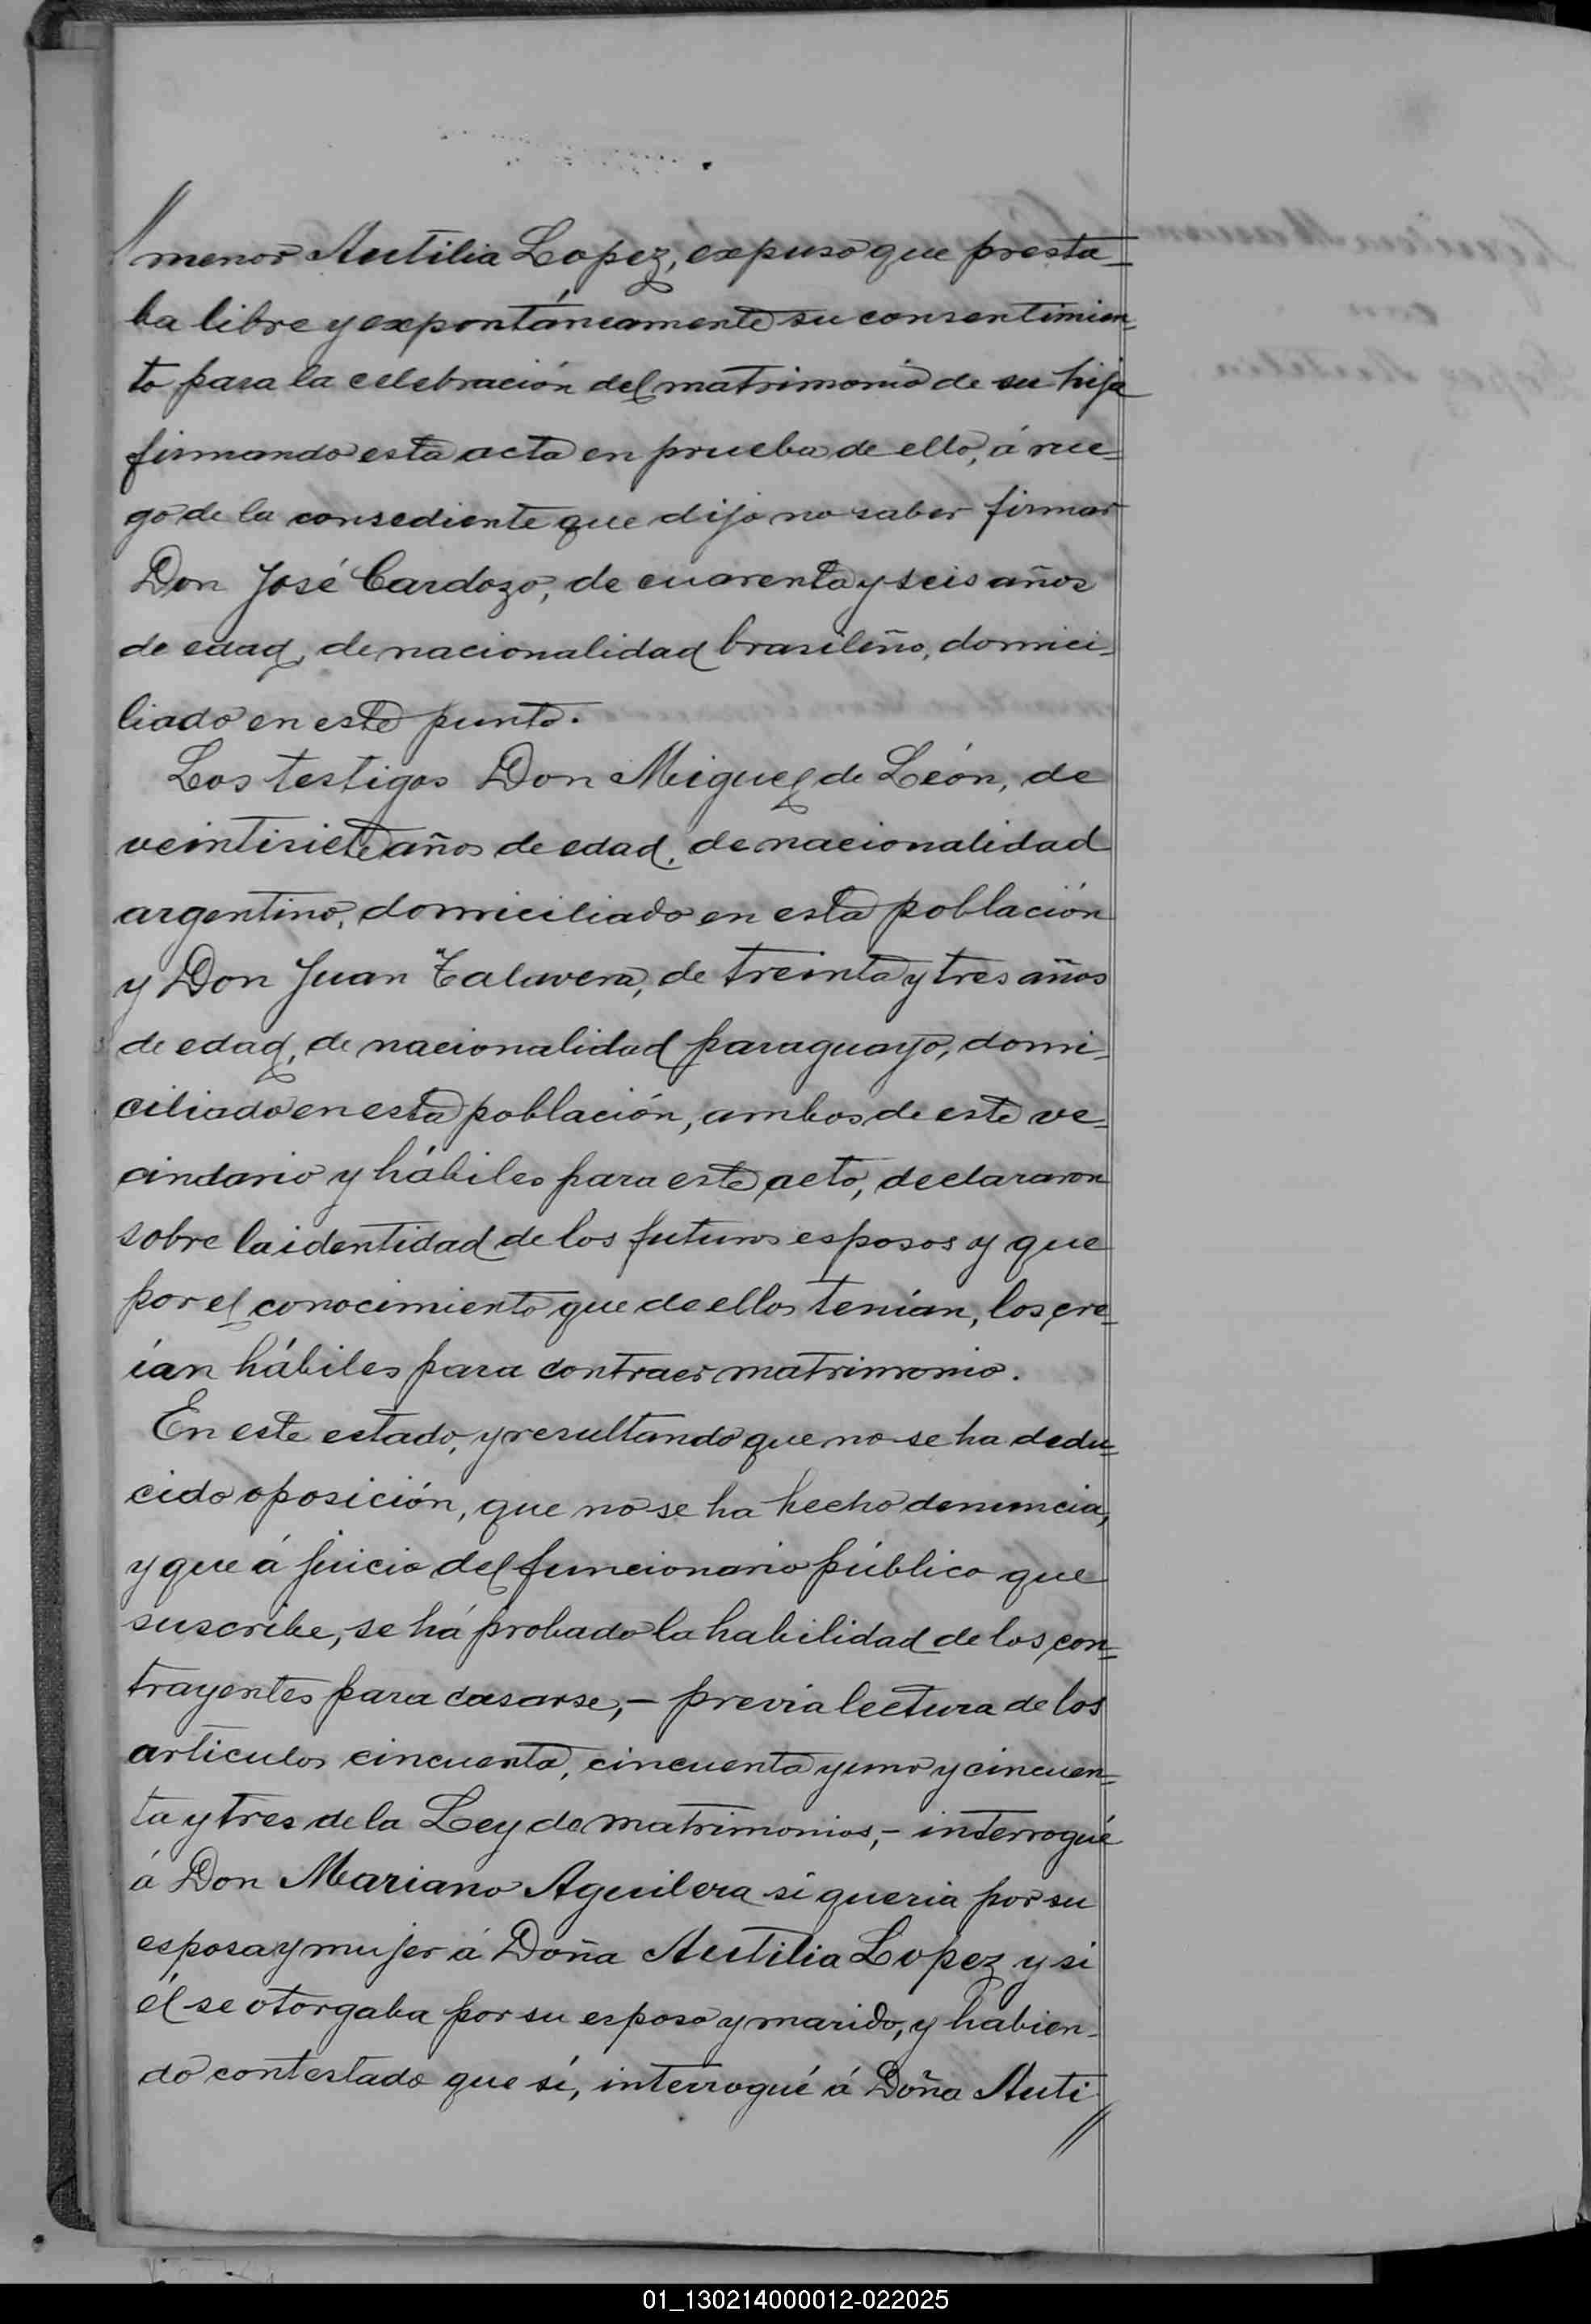 menor Autilia Lopez, expuso que presta=
ba libre y expontáneamente su consentimien=
to para la celebración del matrimonio de su hija
firmando esta acta en prueba de ello, á rue=
go de la consediente que dijo no saber firmar
Don José Cardozo, de cuarenta y seis años
de edad, de nacionalidad brasileño, domici=
liado en este punto.
Los testigos Don Miguel de León, de
veintisiete años de edad, de nacionalidad
argentino, domiciliado en esta población
y Don Juan Talavera, de treinta y tres años
de edad, de nacionalidad paraguayo, domi=
ciliado en esta población, ambos de este ve=
cindario y hábiles para este acto, declararon
sobre la identidad de los futuros esposos y que
por el conocimiento que de ellos tenían, los cre=
ían hábiles para contraer matrimonio.
En este estado, y resultando que no se ha dedu=
cido oposición, que no se ha hecho denuncia,
y que á juicio del funcionario público que
suscribe, se há probado la habilidad de los con=
trayentes para casarse,- previa lectura de los
articulos cincuenta, cincuenta y uno y cincuen=
ta y tres de la Ley de matrimonios,- interrogué
á Don Mariano Aguilera si queria por su
esposa y mujer á Doña Autilia Lopez y si
él se otorgaba por su esposo y marido, y habien-
do contestado que sí, interrogué á Doña Auti
//
01_130214000012-022025